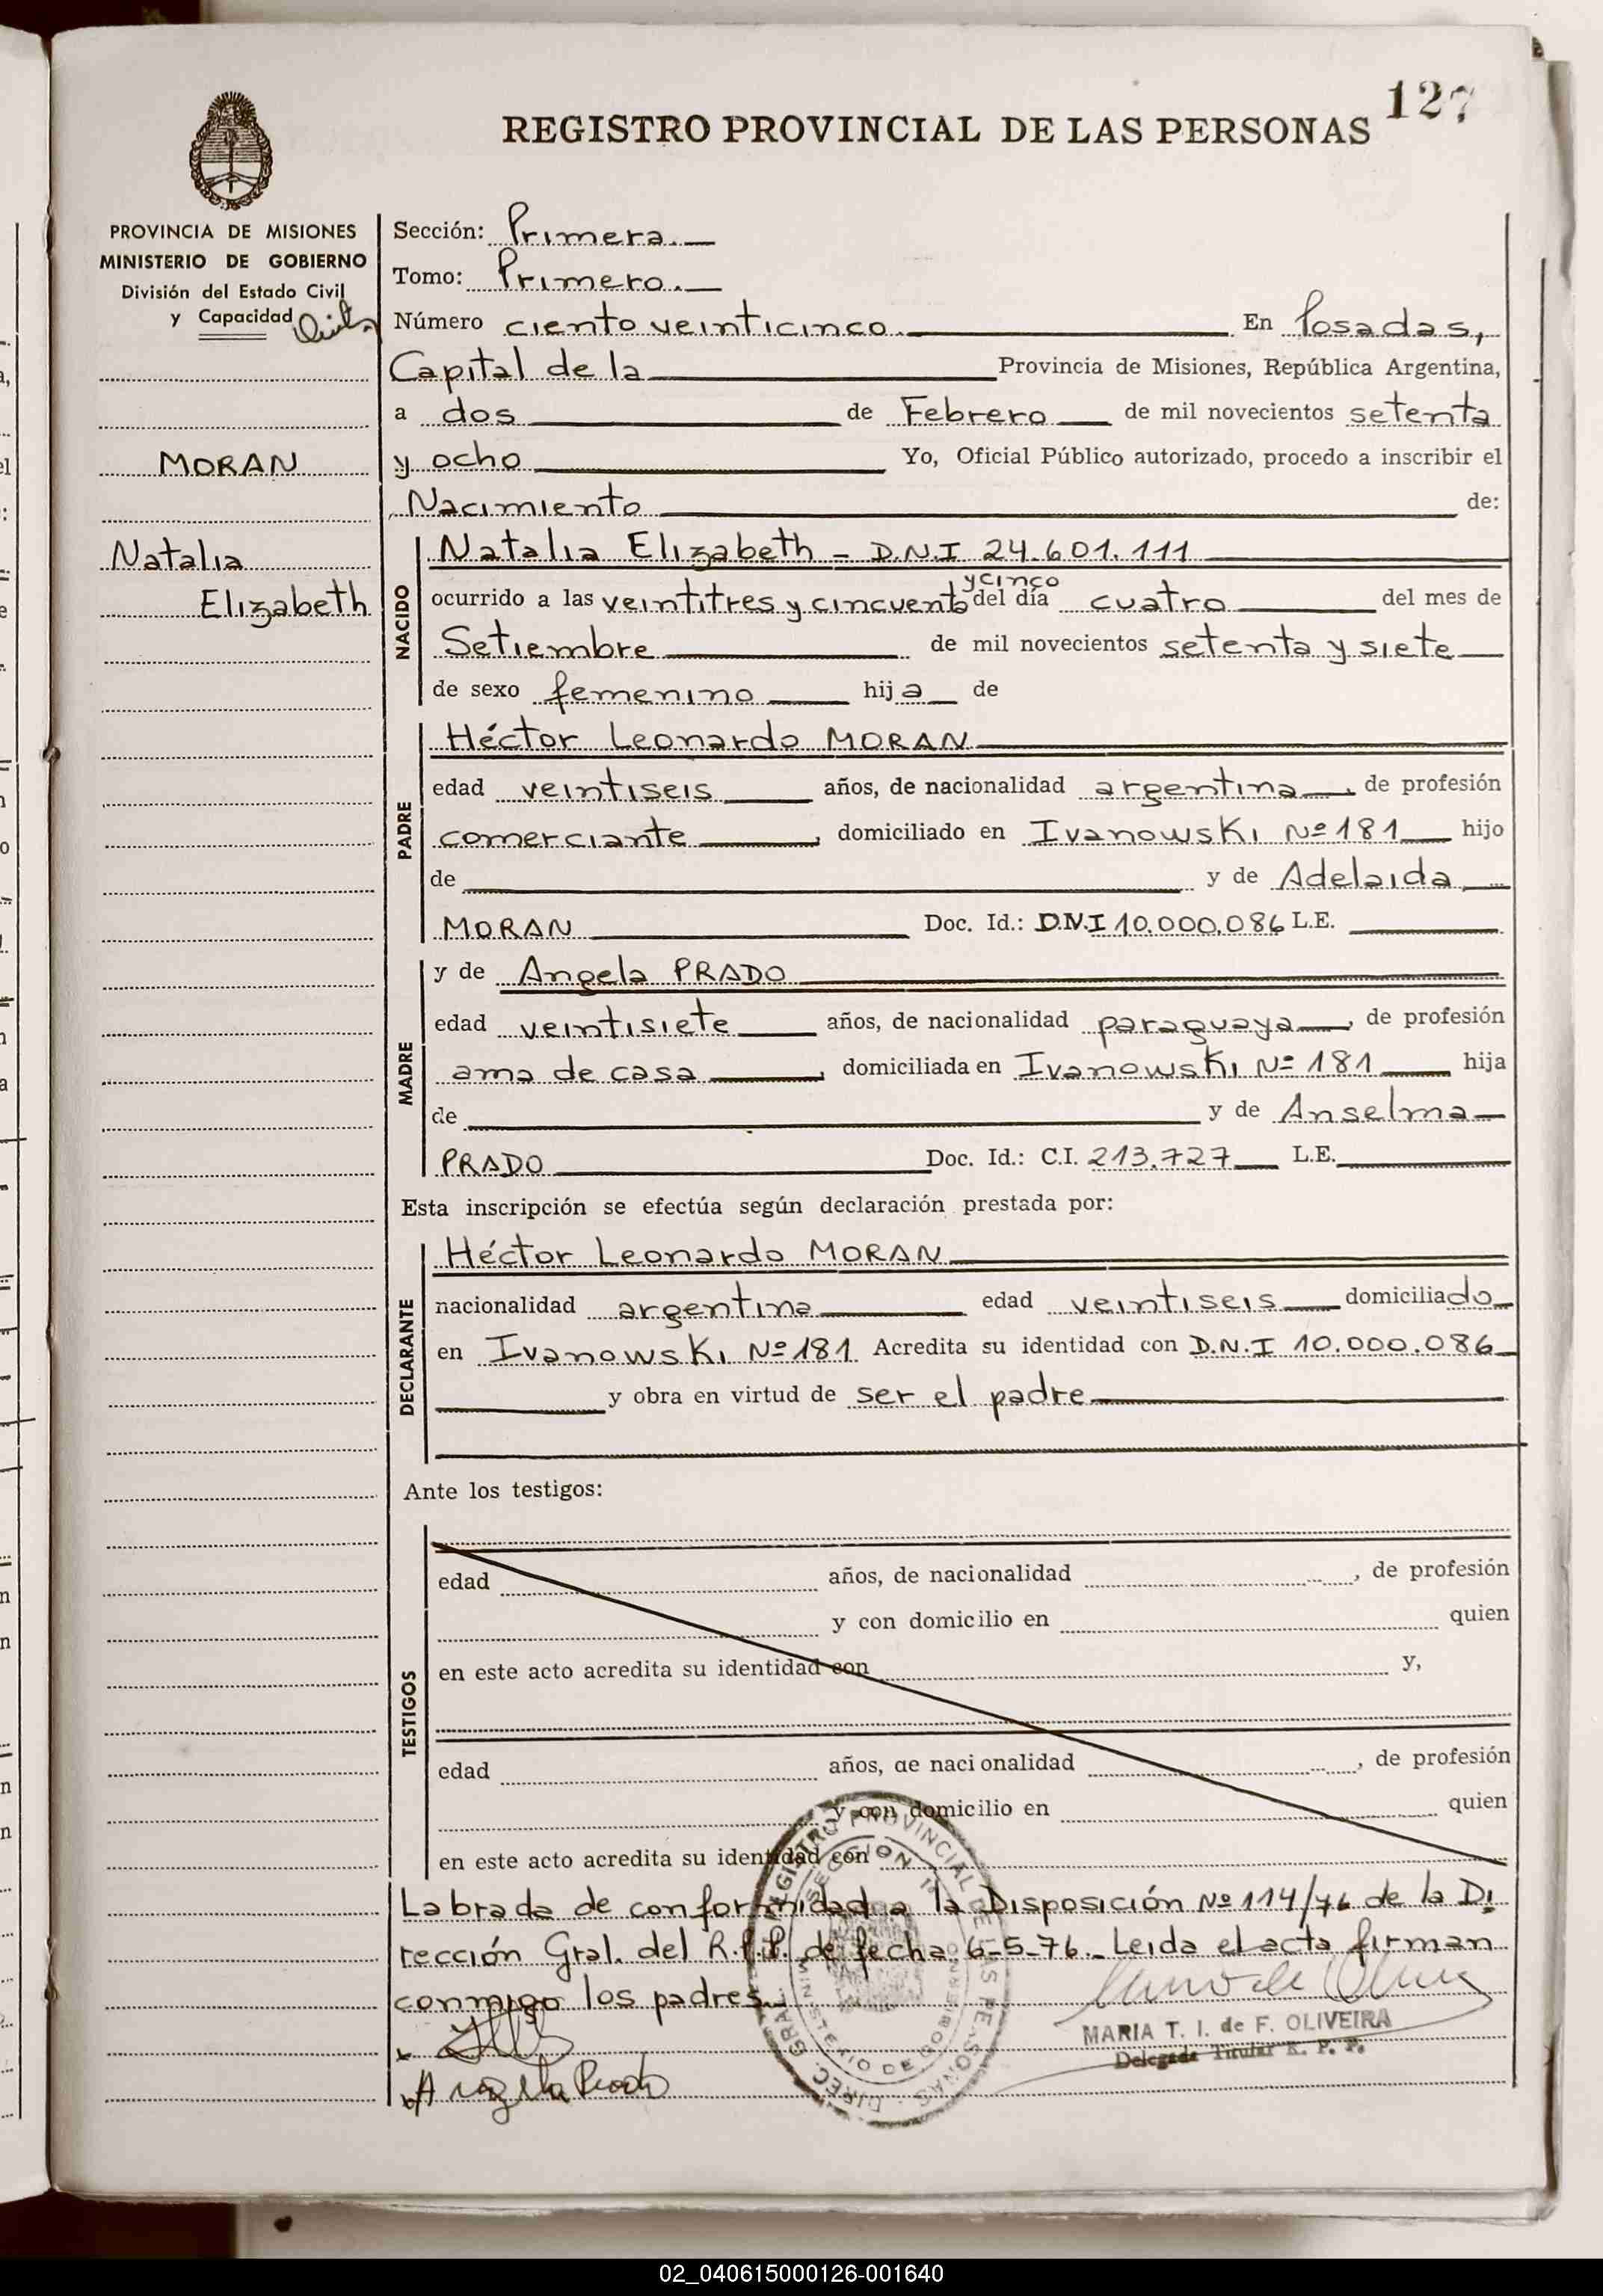 127
REGISTRO PROVINCIAL DE LAS PERSONAS
PROVINCIA DE MISIONES
MINISTERIO DE GOBIERNO
División del Estado Civil
y Capacidad
MORAN
Natalia
Elizabeth
Sección: Primera.
Tomo: Primero.
Número ciento veinticinco. En Posadas,
Capital de la Provincia de Misiones, República Argentina,
a dos de Febrero de mil novecientos setenta
y ocho Yo, Oficial Público autorizado, procedo a inscribir el
Nacimiento de:
NACIDO
Natalia Elizabeth - D.N.I 24.601.111
y cinco
ocurrido a las veintitres y cincuenta del día cuatro del mes de
Setiembre de mil novecientos setenta y siete
de sexo femenino hija de
PADRE
Héctor Leonardo MORAN
edad veintiseis años, de nacionalidad argentina, de profesión
comerciante, domiciliado en Ivanowski Nº 181 hijo
de y de Adelaida
MORAN Doc. Id.: D.N.I 10.000.086 L.E.
MADRE
y de Angela PRADO
edad veintisiete años, de nacionalidad paraguaya, de profesión
ama de casa, domiciliada en Ivanowski Nº 181 hija
de y de Anselma
PRADO Doc. Id.: C.I. 213.727 L.E.
Esta inscripción se efectúa según declaración prestada por:
DECLARANTE
Héctor Leonardo MORAN
nacionalidad argentina edad veintiseis domiciliado
en Ivanowski Nº 181 Acredita su identidad con D.N.I 10.000.086
y obra en virtud de ser el padre
Ante los testigos:
TESTIGOS
edad años, de nacionalidad , de profesión
y con domicilio en quien
en este acto acredita su identidad con y,
edad años, de nacionalidad , de profesión
y con domicilio en quien
en este acto acredita su identidad con
Labrada de conformidad a la Disposición Nº 114/76 de la Di
rección Gral. del R.P.P. de fecha 6-5-76. Leida el acta firman
conmigo los padres.
Angela Prado
MARIA T. I. de F. OLIVEIRA
Delegada Titular R. P. P.
DIREC. GRAL. REGISTRO PROVINCIAL DE LAS PERSONAS
SECCION 1ª
MINISTERIO DE GOBIERNO
02_040615000126-001640